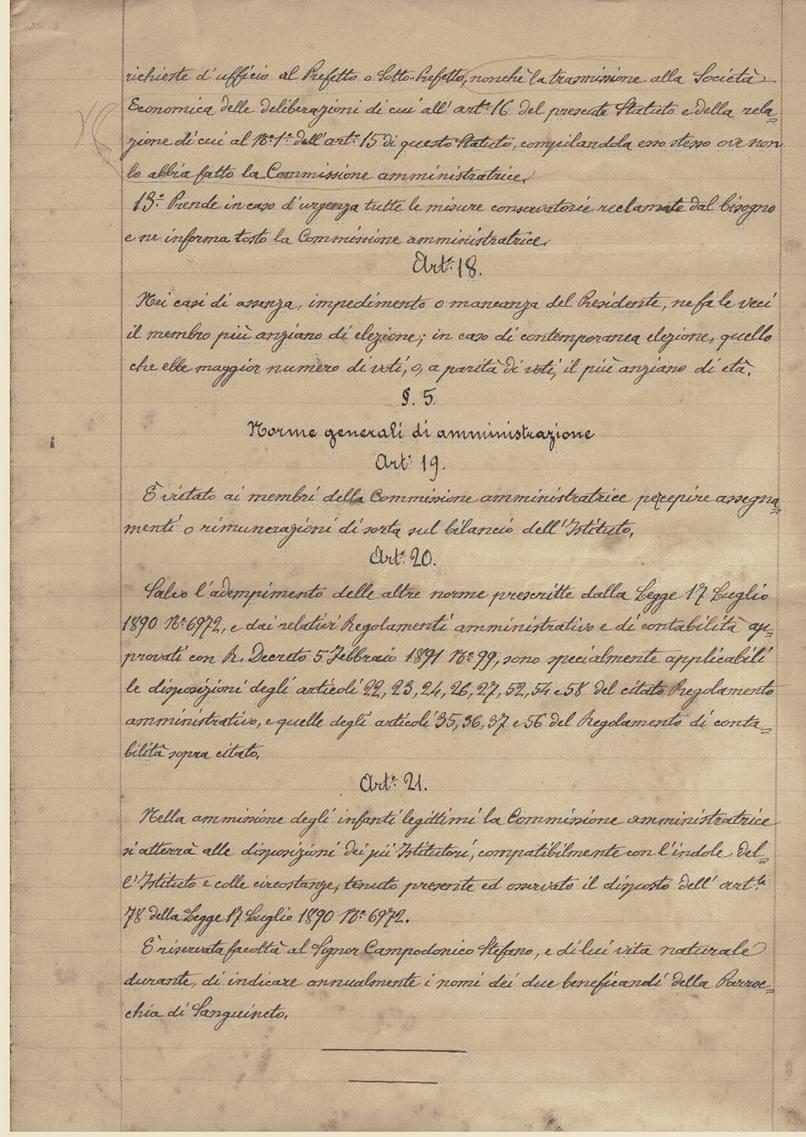 richieste d'ufficio al Prefetto o Sotto-Prefetto, nonchè la trasmissione alla Società
Economica delle deliberazioni di cui all'art.º 16 del presente Statuto e della rela-
zione di cui al Nº 1º dell'art.º 15 di questo Statuto, compilandola esso stesso ove non
lo abbia fatto la Commissione amministratrice.
13º Prende in caso d'urgenza tutte le misure conservatorie reclamate dal bisogno
e ne informa tosto la Commissione amministratrice.
Artº 18.
Nei casi di assenza, impedimento o mancanza del Presidente, ne fa le veci
il membro più anziano di elezione; in caso di contemporanea elezione, quello
che ebbe maggior numero di voti, o, a parità di voti, il più anziano di età.
§. 5.
Norme generali di amministrazione
Artº 19.
È vietato ai membri della Commissione amministratrice percepire assegna-
menti o rimunerazioni di sorta sul bilancio dell'Istituto.
Artº 20.
Salvo l'adempimento delle altre norme prescritte dalla Legge 17 Luglio
1890 Nº 6972, e dai relativi Regolamenti amministrativo e di contabilità ap-
provati con R. Decreto 5 Febbraio 1891 Nº 99, sono specialmente applicabili
le disposizioni degli articoli 22, 23, 24, 26, 27, 52, 54 e 58 del citato Regolamento
amministrativo, e quelle degli articoli 35, 36, 37 e 56 del Regolamento di conta-
bilità sopra citato.
Artº 21.
Nella ammissione degli infanti legittimi la Commissione amministratrice
si atterrà alle disposizioni dei pii Istitutori, compatibilmente con l'indole del-
l'Istituto e colle circostanze, tenuto presente ed osservato il disposto dell'art.lo
78 della Legge 17 Luglio 1890 Nº 6972.
È riservata facoltà al Signor Campodonico Stefano, e di lui vita naturale
durante, di indicare annualmente i nomi dei due beneficandi della Parroc-
chia di Sanguineto.